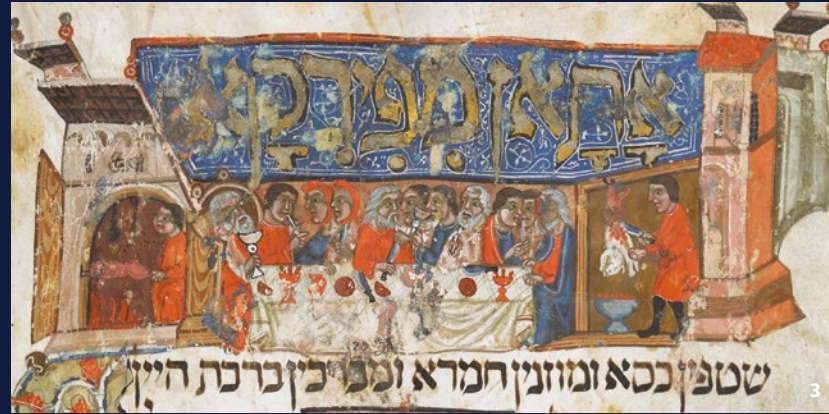 אַתָאן מִפִירְקָא
שטפין כסא ומוזגין חמרא ומברכין ברכת היין
3